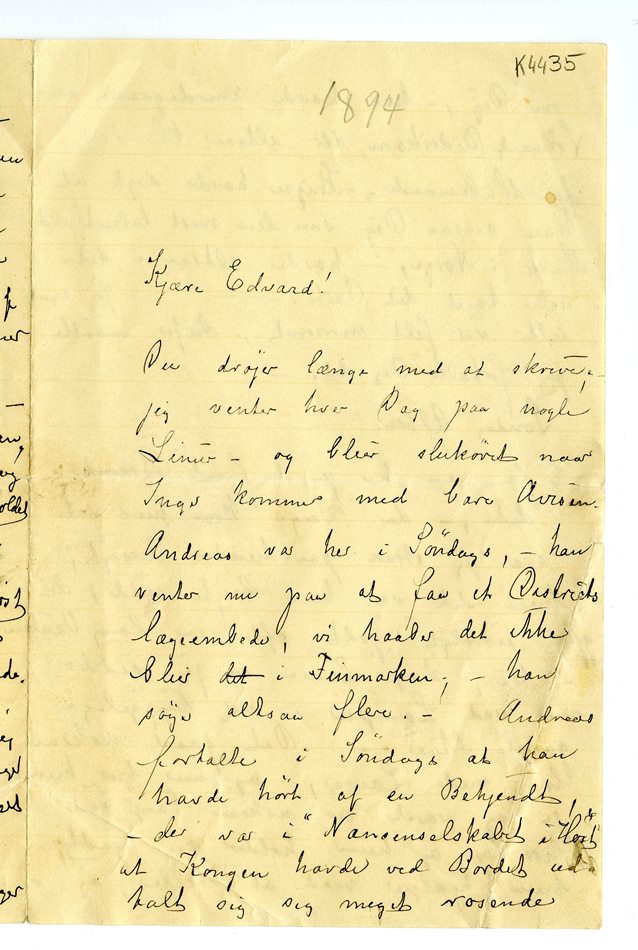 K4435
1894
Kjære Edvard!
Du drøjer længe med at skrive, –
jeg venter hver Dag paa nogle
Linier – og blier slukøret naar
Inga kommer med bare Avisen.
Andreas var her i Søndags, – han
venter nu paa at faa et Districts
lægeembede, vi haaber det ikke
blier det i Finmarken; – han
søger altsaa flere. – Andreas
fortalte i Søndags at han
havde hørt af en Bekjendt,
– der var i "Nansenselskabet i Høst"
at Kongen havde ved Bordet ud-
talt sig sig meget rosende